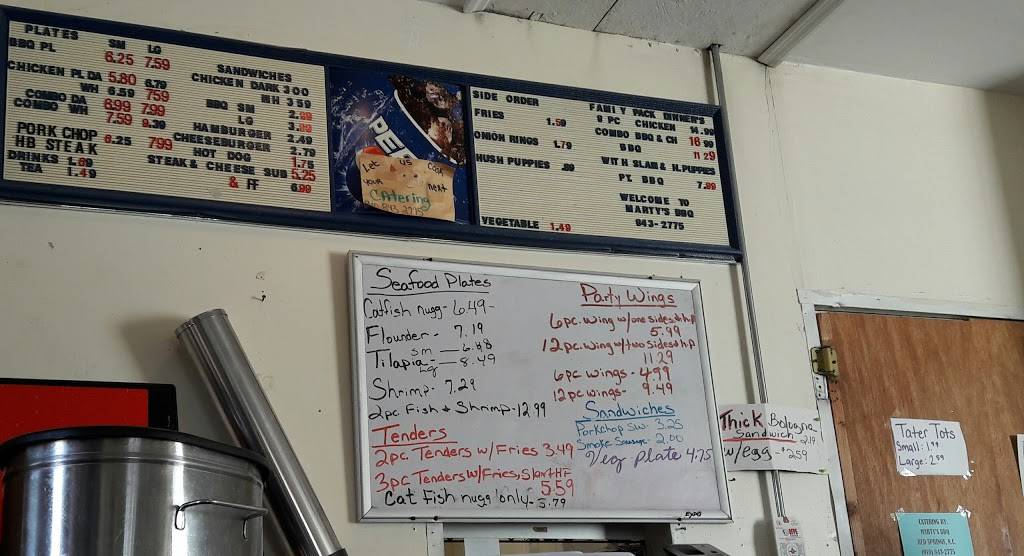 PLATES SM LG
BBQ PL 6.25 7.59
CHICKEN PL DA 5.80 6.79
WH 6.59 759
COMBO DA 6.99 7.99
COMBO WH 7.59 9.39
PORK CHOP 6.25 799
HB STEAK
DRINKS 1.69
TEA 1.49
SANDWICHES
CHICKEN DARK 3 00
WH 3 59
BBQ SM
LG
HAMBURGER 2.49
CHEESEBURGER 2.79
HOT DOG 1.75
STEAK & CHEESE SUB 5.25
& FF 6.99
Let us Cook
your next
CAtering
843-2775
SIDE ORDER
FRIES 1.59
ONION RINGS 1.79
HUSH PUPPIES .89
VEGETABLE 1.49
FAMILY PACK DINNER'S
8 PC CHICKEN 14.99
COMBO BBQ & CH 16 99
BBQ 11 29
WITH SLAW & H.PUPPIES
PT BBQ 7.99
WELCOME TO
MARTY'S BBQ
843-2775
Seafood Plates
Catfish nugg- 6.49-
Flounder - 7.19
Tilapia - sm 6.88
Lg 8.49
Shrimp- 7.29
2pc Fish & Shrimp-12.99
Tenders
2pc Tenders w/Fries 3.49
3pc Tenders w/Fries, Slaw+H.P
5.59
Cat Fish nugg only- 5.79
Party Wings
6pc. wing w/one side s+h.p
5.99
12pc. wing w/two sides+h.p
11.29
6pc wings- 4.99
12pc wings- 9.49
Sandwiches
Porkchop Sw. 3.25
Smoke Sausage- 2.00
Veg plate 4.75
EXPO
Thick Bologna
Sandwich 2.19
w/egg - $259
Tater Tots
Small: 1.99
Large: 2.99
CATERING BY:
MARTY'S BBQ
RED SPRINGS, N.C.
(910) 843-2775